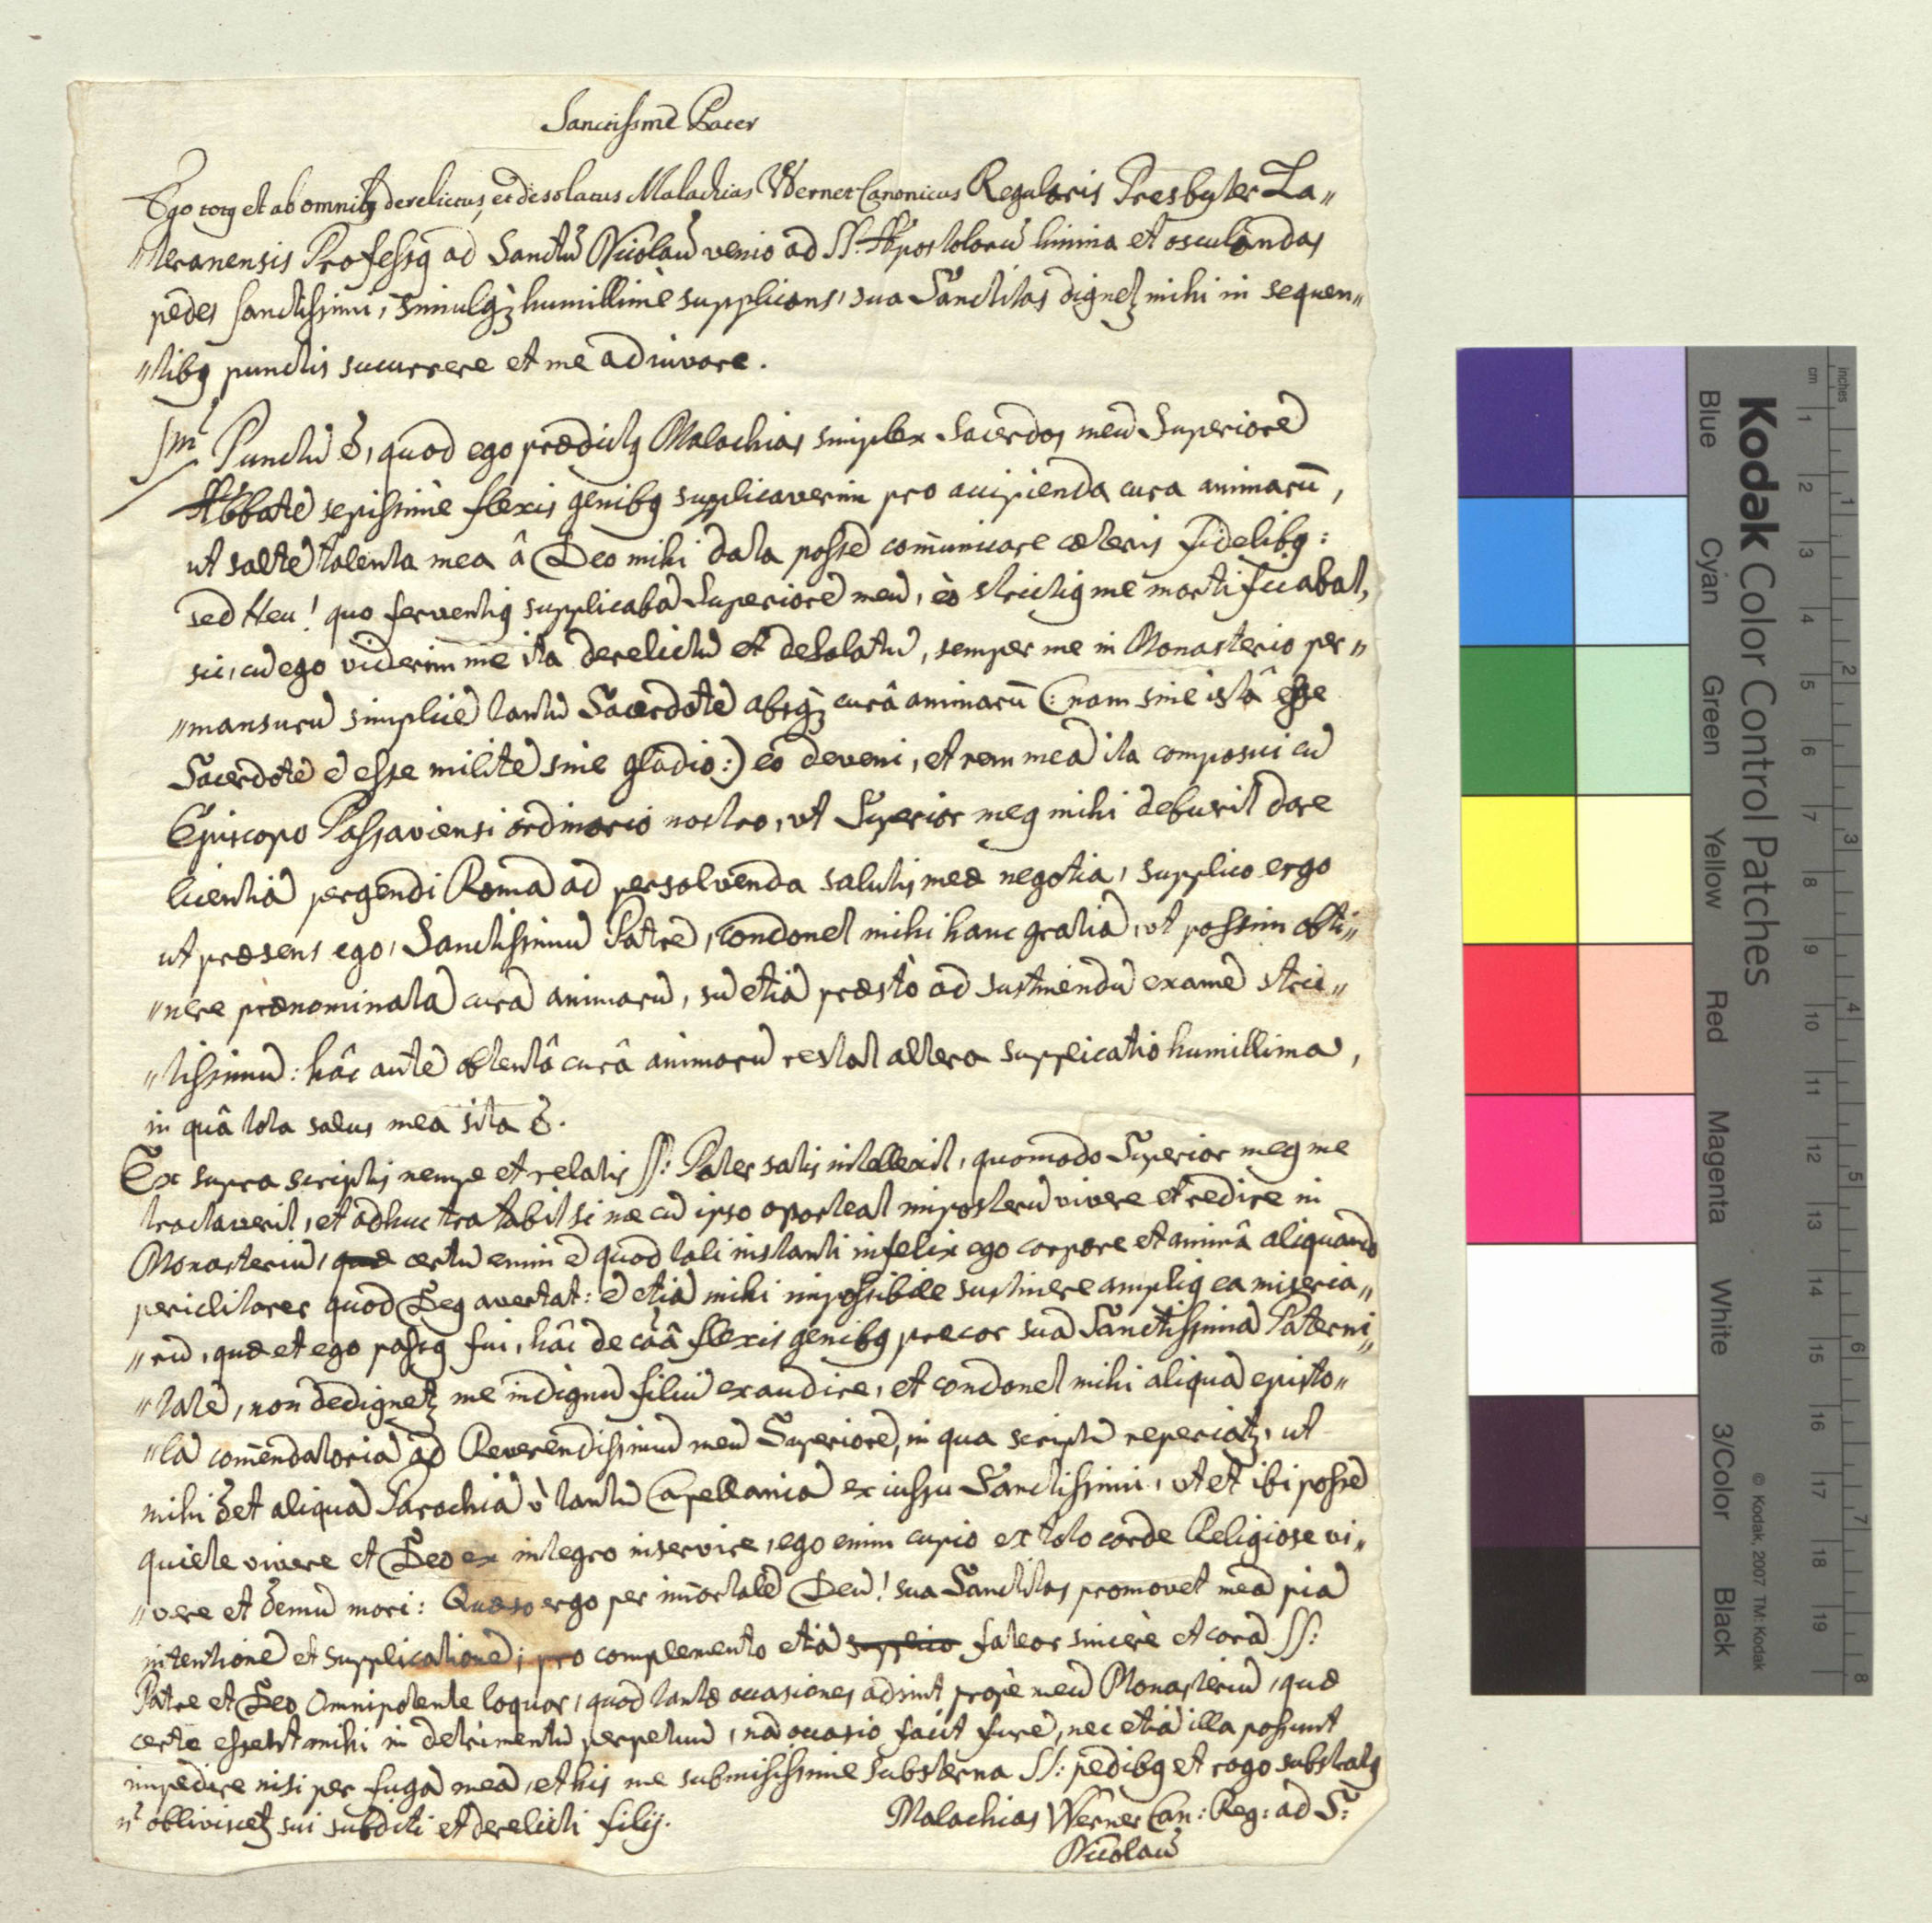 Sanctissime Pater
Ego totq et ab omnibq derelictus, et desolatus Malachias Werner Canonicus Regularis Presbyter La„
„teranensis Professq ad Sanctū Nicolaū venio ad SS. Apostolorū limina et osculandas
pedes Sanctissimi, simulq; humillimè supplicans, sua Sanctitas dignet mihi in sequen„
„tibq punctis sucurrere et me adiuvare.
Punctū ē, quod ego prædictq Malachias simplex Sacerdos meū Superiorē
Abbatē sepissimè flexis genibq supplicaverim pro accipienda cura animarū,
ut saltē talenta mea â Deo mihi data possē com̄unicare cæteris fidelibq:
sed Heu! quo ferventiq supplicabā Superiorē meū, eò strictiq me mortificabat,
sic, cū ego viderim me ita derelictū et desolatū, semper me in Monasterio per„
„mansurū simplicē tantū Sacerdotē absq; curâ animarū (: nam sine istâ esse
Sacerdotē ē esse militē sine gladio:) eò deveni, et rem meā ita composui cū
Episcopo Passaviensi ordinario nostro, ut Superior meq mihi debuerit dare
licentiā pergendi Romā ad persolvenda salutis meæ negotia, supplico ergo
ut præsens ego, Sanctissimū Patrē, condonet mihi hanc gratiā, ut possim obti„
„nere prænominatā curā animarū, sū etiā præstò ad sustinendū examē stric„
„tissimū: hâc autē obtentâ curâ animarū restat altera supplicatio humillima,
in quâ tota salus mea sita ē.
Ex supra scriptis nempe et relatis SS: Pater satis intellexit, quomodo Superior meq me
tractaverit, et adhuc tratabit si me cū ipso oporteat imposterū vivere et redire in
Monasteriū, quæ certū enim ē quod tali instanti infelix ego corpore et animâ aliquando
periclitarer quod Deq avertat: ē etiā mihi impossibile sustinere ampliq ea miseria„
„rū, quæ et ego passq fui, hâc de cāâ flexis genibq precor suā Sanctissimā Paterni„
„tatē, non dedignet me indignū filiū exaudire, et condonet mihi aliquā episto„
„lā com̄endatoriā ad Reverendissimū meū Superiorē, in qua scriptū reperiat, ut
mihi det aliquā Parochiā v̀ tantū Capellaniā ex iussu Sanctissimi, ut et ibi possē
quiete vivere et Deo ex integro inservire, ego enim cupio ex toto corde Religiose vi„
„vere et demū mori: Quæso ergo per im̄ortalē Deū! sua Sanctitas promovet meā piā
intentionē et supplicationē; pro complemento etiā supplico fateor sincerè et corā SS:
Patre et Deo Omnipotente loquor, quod tantæ occasiones adsint propè meū Monasteriū, quæ
certe essent mihi in detrimentū perpetuū, nā occasio facit furē, nec etiā illa possunt
impedire nisi per fugā meā, et his me submississime substerna SS: pedibq et rogo substratq
obliviscet sui subditi et derelicti filij.
Malachias Werner Can: Reg: ad S:
Nicolaū
Kodak Color Control Patches
Blue Cyan Green Yellow Red Magenta White 3/Color Black
© Kodak, 2007 TM: Kodak
cm 1 2 3 4 5 6 7 8 9 10 11 12 13 14 15 16 17 18 19
inches 1 2 3 4 5 6 7 8